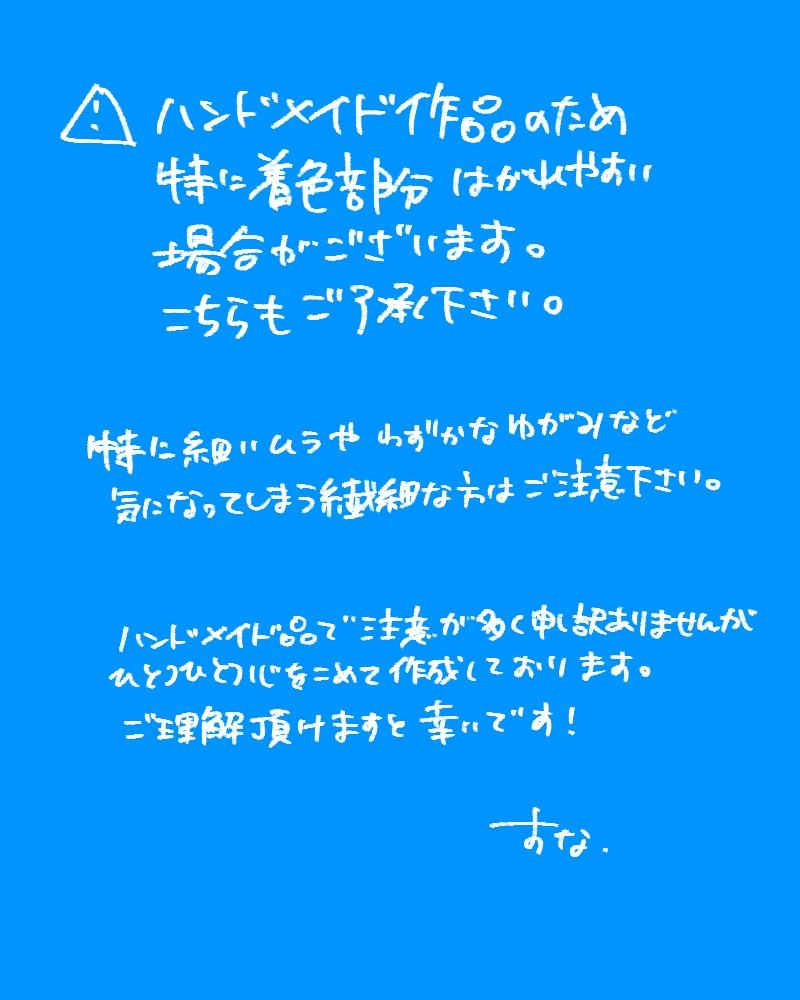 ⚠ ハンドメイド作品のため
特に着色部分 はがれやすい
場合がございます。
こちらもご了承下さい。
特に細いムラや わずかなゆがみなど
気になってしまう繊細な方はご注意下さい。
ハンドメイド品で注意が多く申し訳ありませんが
ひとつひとつ心をこめて作成しております。
ご理解頂けますと幸いです!
すな.